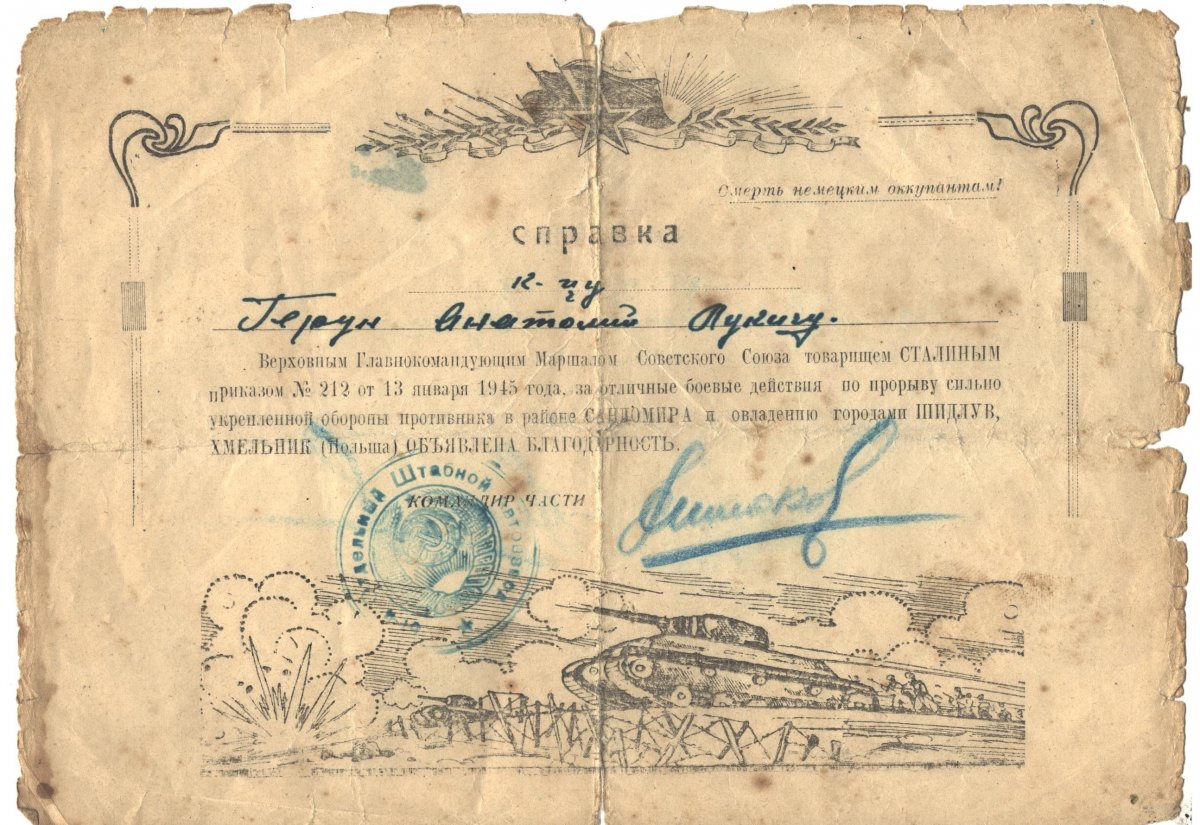 Смерть немецким оккупантам!
справка
к-цу
Герун Анатолий Лукичу.
Верховным Главнокомандующим Маршалом Советского Союза товарищем СТАЛИНЫМ
приказом № 212 от 13 января 1945 года, за отличные боевые действия по прорыву сильно
укрепленной обороны противника в районе САНДОМИРА и овладению городами ШИДЛУВ,
ХМЕЛЬНИК (Польша) ОБЪЯВЛЕНА БЛАГОДАРНОСТЬ.
КОМАНДИР ЧАСТИ
Штабной